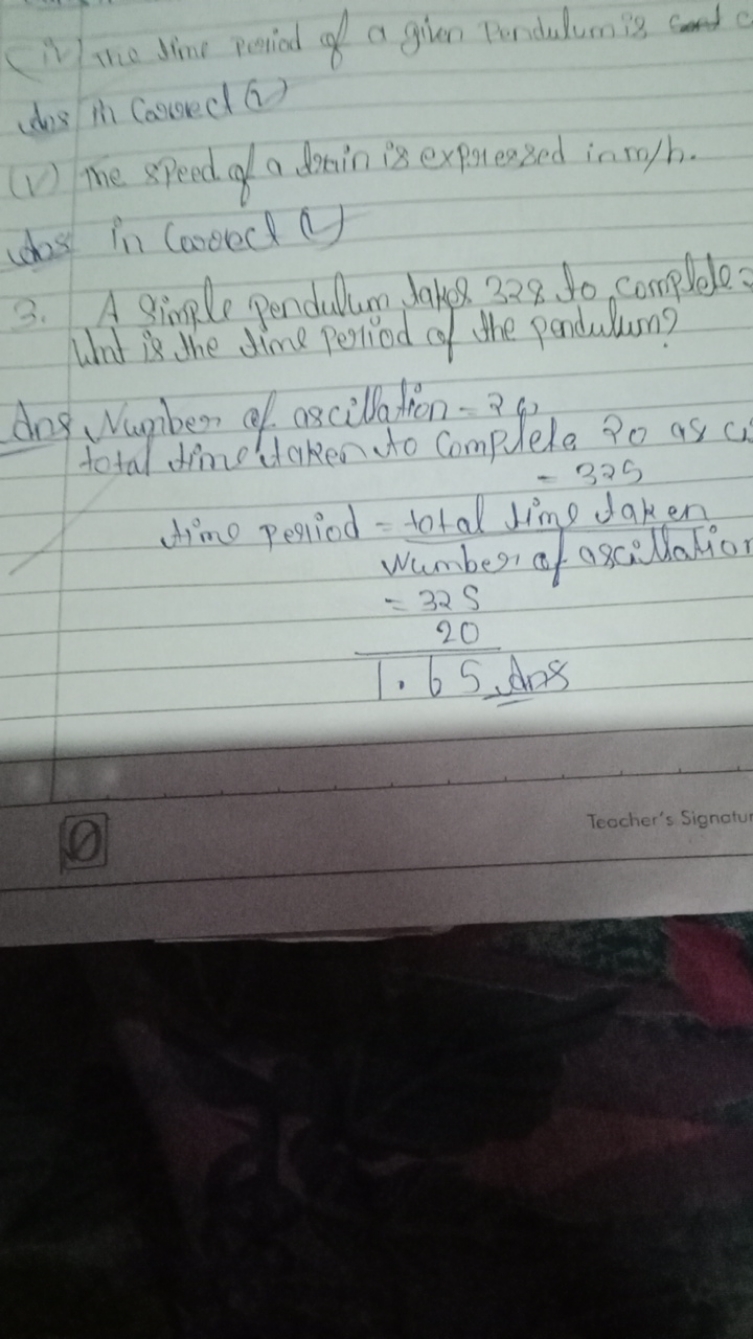 (iv) The time period of a given Pendulum is
Ans in Correct (✓)
(V) The speed of a train is expressed in m/h.
Ans in Correct (✓)
3. A simple pendulum takes 32s to complete 2
What is the time period of the pendulum?
Ans Number of ascillation = 20
total time taken to complete 20 as ci
= 32S
time period = total time taken
Number of ascillation
= 32S
20
1.6S Ans
Teacher's Signatur